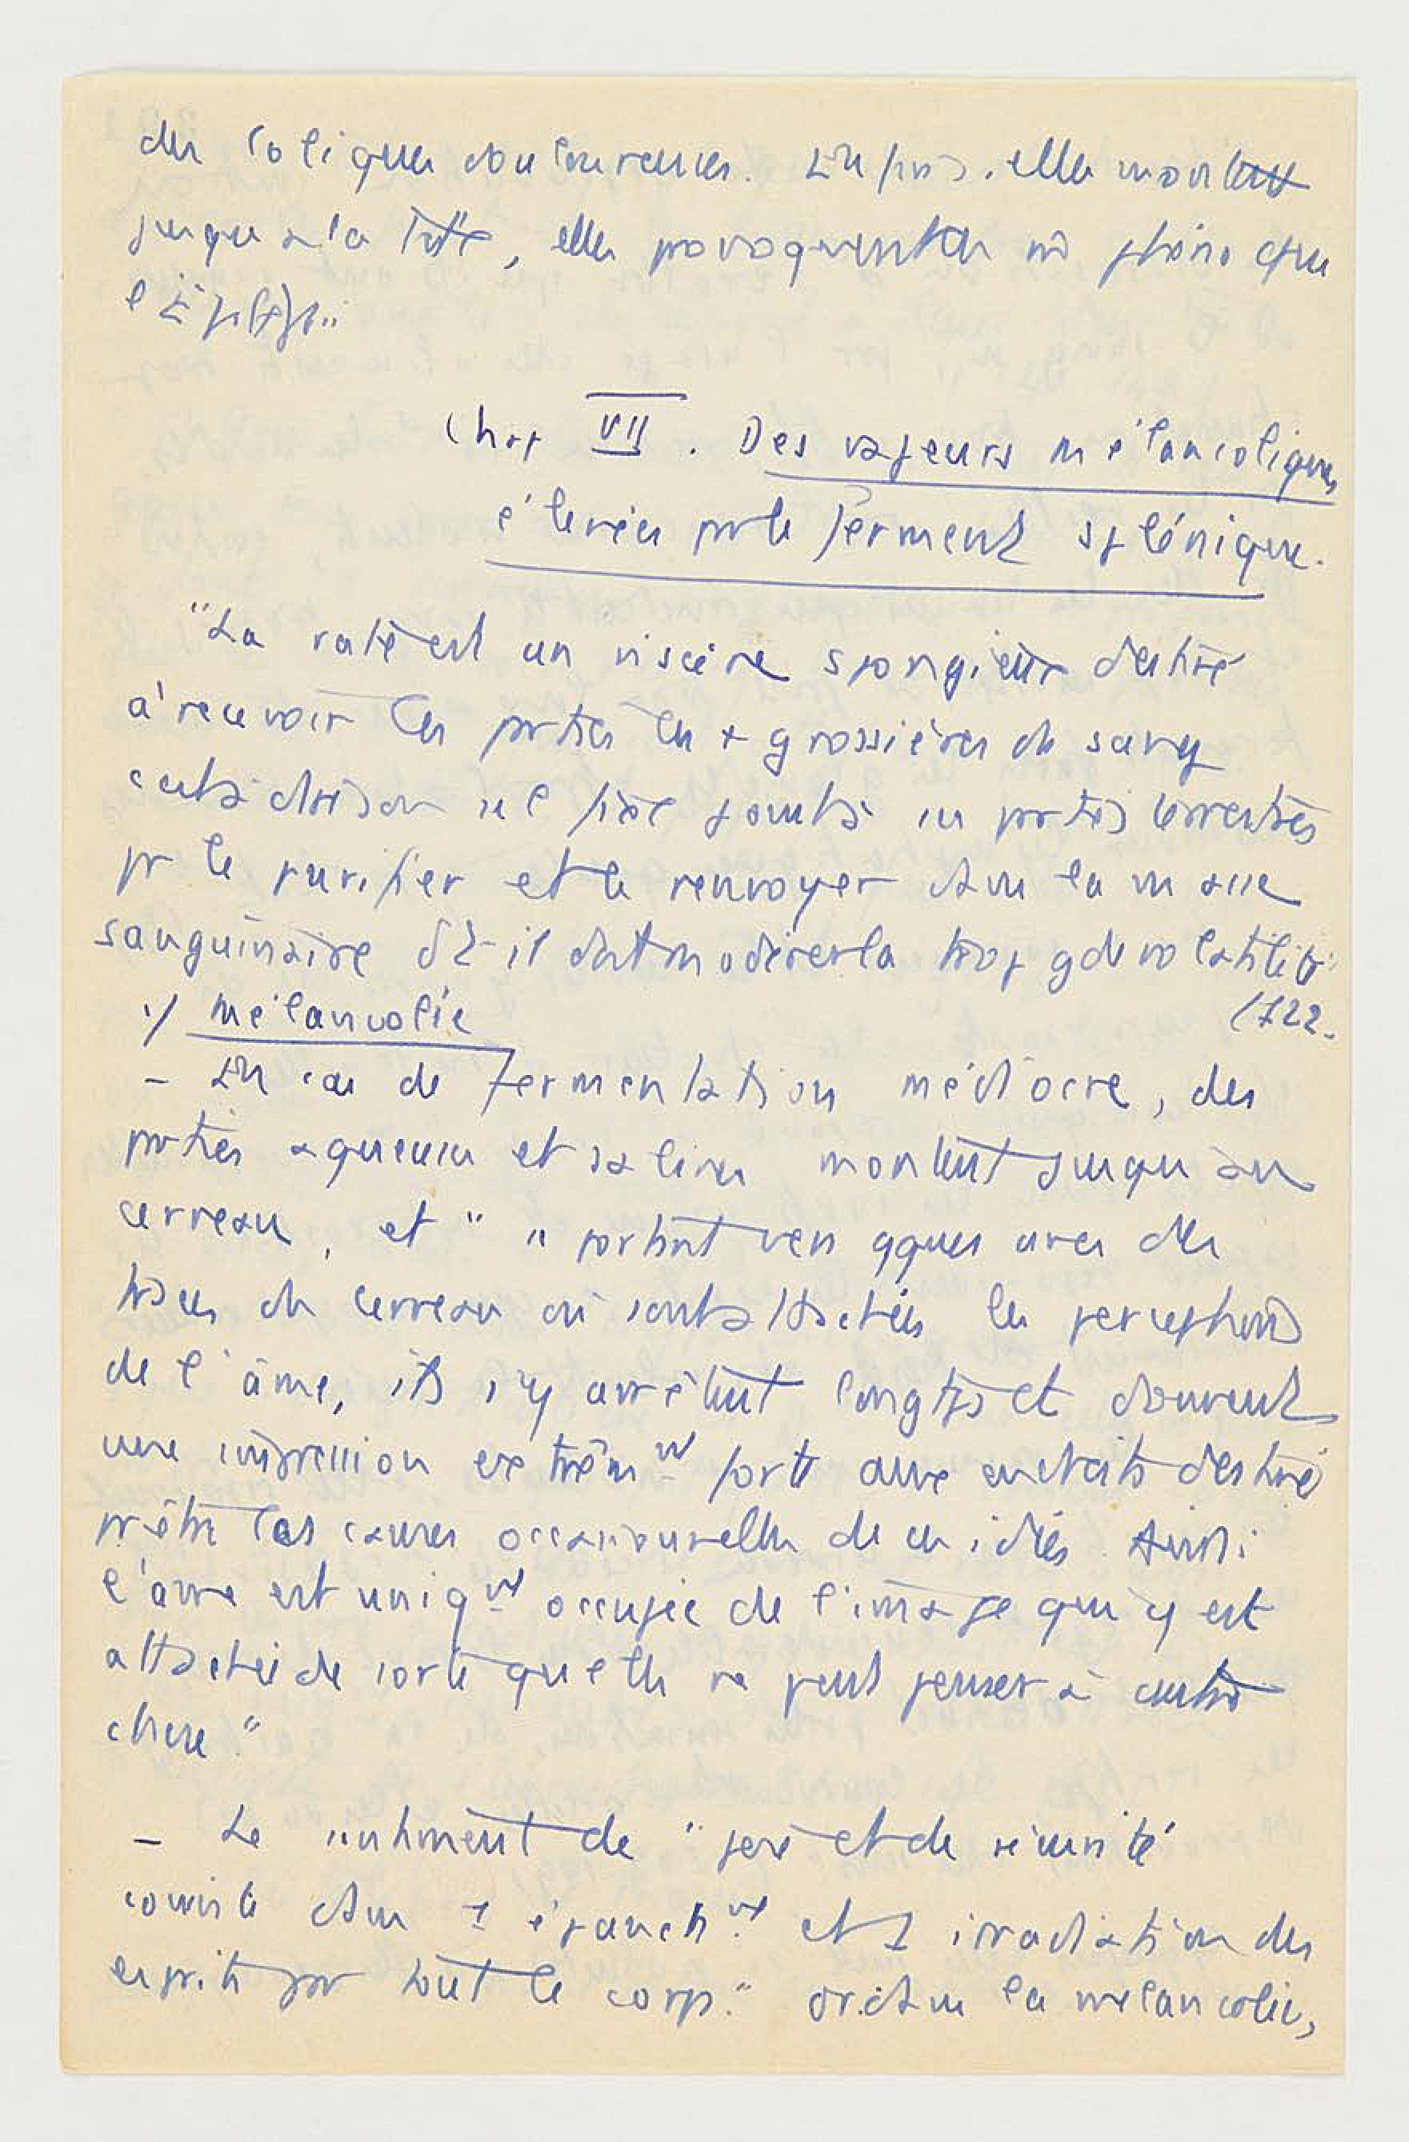 des coliques douloureuses. Enfin si elles montent
jusqu'à la tête, elles provoquent un phéno que
l'Épilepsie
Chap VII. Des vapeurs mélancoliques
élevées par le ferment splénique.
"La rate est un viscère spongieux destiné
à recevoir les parties les + grossières du sang
pr le purifier et le renvoyer dans la masse
sanguinaire dt il doit modérer la trop gde volatilité"
(122.
1/ mélancolie
- En cas de fermentation médiocre, des
parties aqueuses et salines montent jusqu'au
cerveau, et " " portent vers qques unes des
traces du cerveau où sont attachées les perceptions
de l'âme, ils s'y arrêtent longtps et donnent
une impression extrêmt forte aux endroits destinés
pr être les causes occasionnelles de ces idées. Ainsi
l'âme est uniqt occupée de l'image qui y est
attachée de sorte qu'elle ne peut penser à autre
chose."
- Le sentiment de "joie et de sérénité
consiste dans 1 épancht et 1 irradiation des
esprits par tout le corps." Or dans la mélancolie,